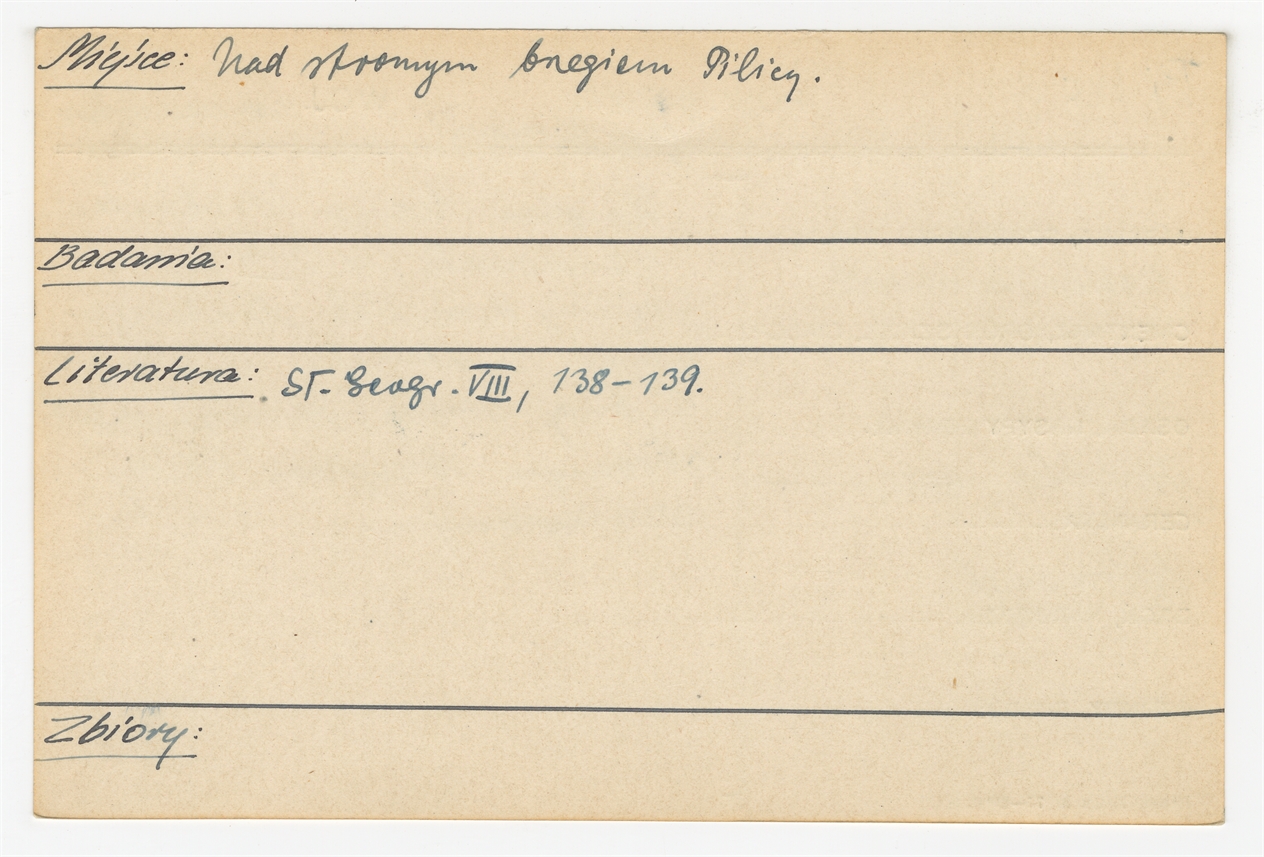 Miejsce: Nad stromym brzegiem Pilicy.
Badania:
Literatura: Sł. Geogr. VIII, 138-139.
Zbiory: